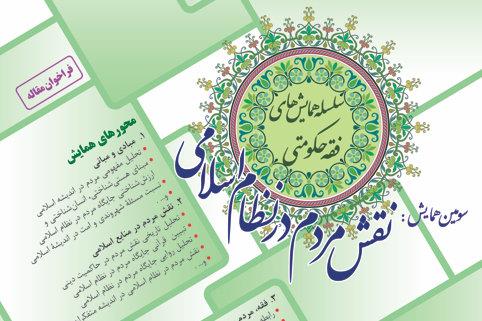 فراخوان مقاله
سلسله همایش‌های
فقه حکومتی
سومین همایش:
نقش مردم در نظام اسلامی
محورهای همایش
۱. مبادی و مبانی
• تحلیل مفهومی مردم در اندیشه اسلامی
• مبنای هستی‌شناختی، انسان‌شناختی و
ارزش‌شناختی جایگاه مردم در نظام اسلامی
• نسبت مسئله شهروندی و امت در اندیشهٔ اسلامی
• و...
۲. نقش مردم در منابع اسلامی
• تحلیل تاریخی نقش مردم در حاکمیت دینی
• تبیین قرآنی جایگاه مردم در نظام اسلامی
• تحلیل روایی جایگاه مردم در نظام اسلامی
• نقش مردم در نظام اسلامی در اندیشه متفکران
• و...
۳. فقه، مردم
• رابطه